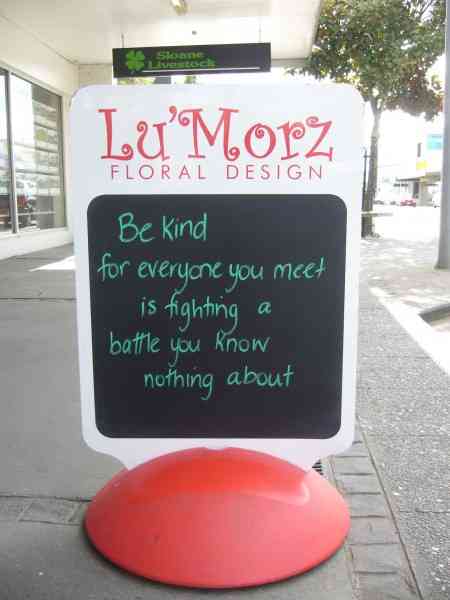 Sloane
Livestock
Lu'Morz
FLORAL DESIGN
Be Kind
for everyone you meet
is fighting a
battle you know
nothing about